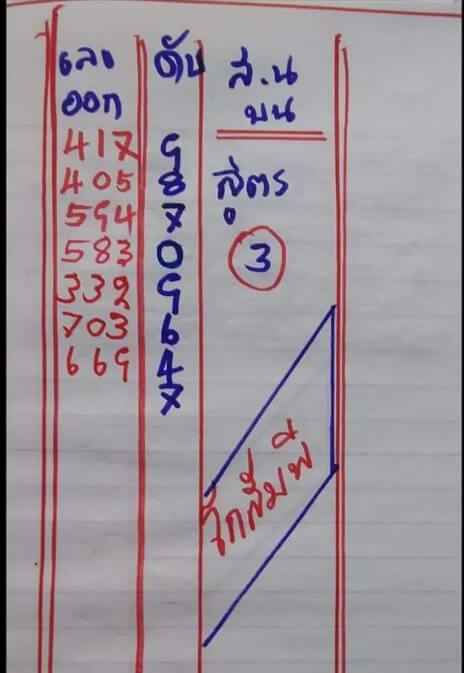 เลข
ออก
ดับ
ส.น
บน
417 9
405 8
594 7
583 0
332 9
703 6
669 4
7
สูตร
3